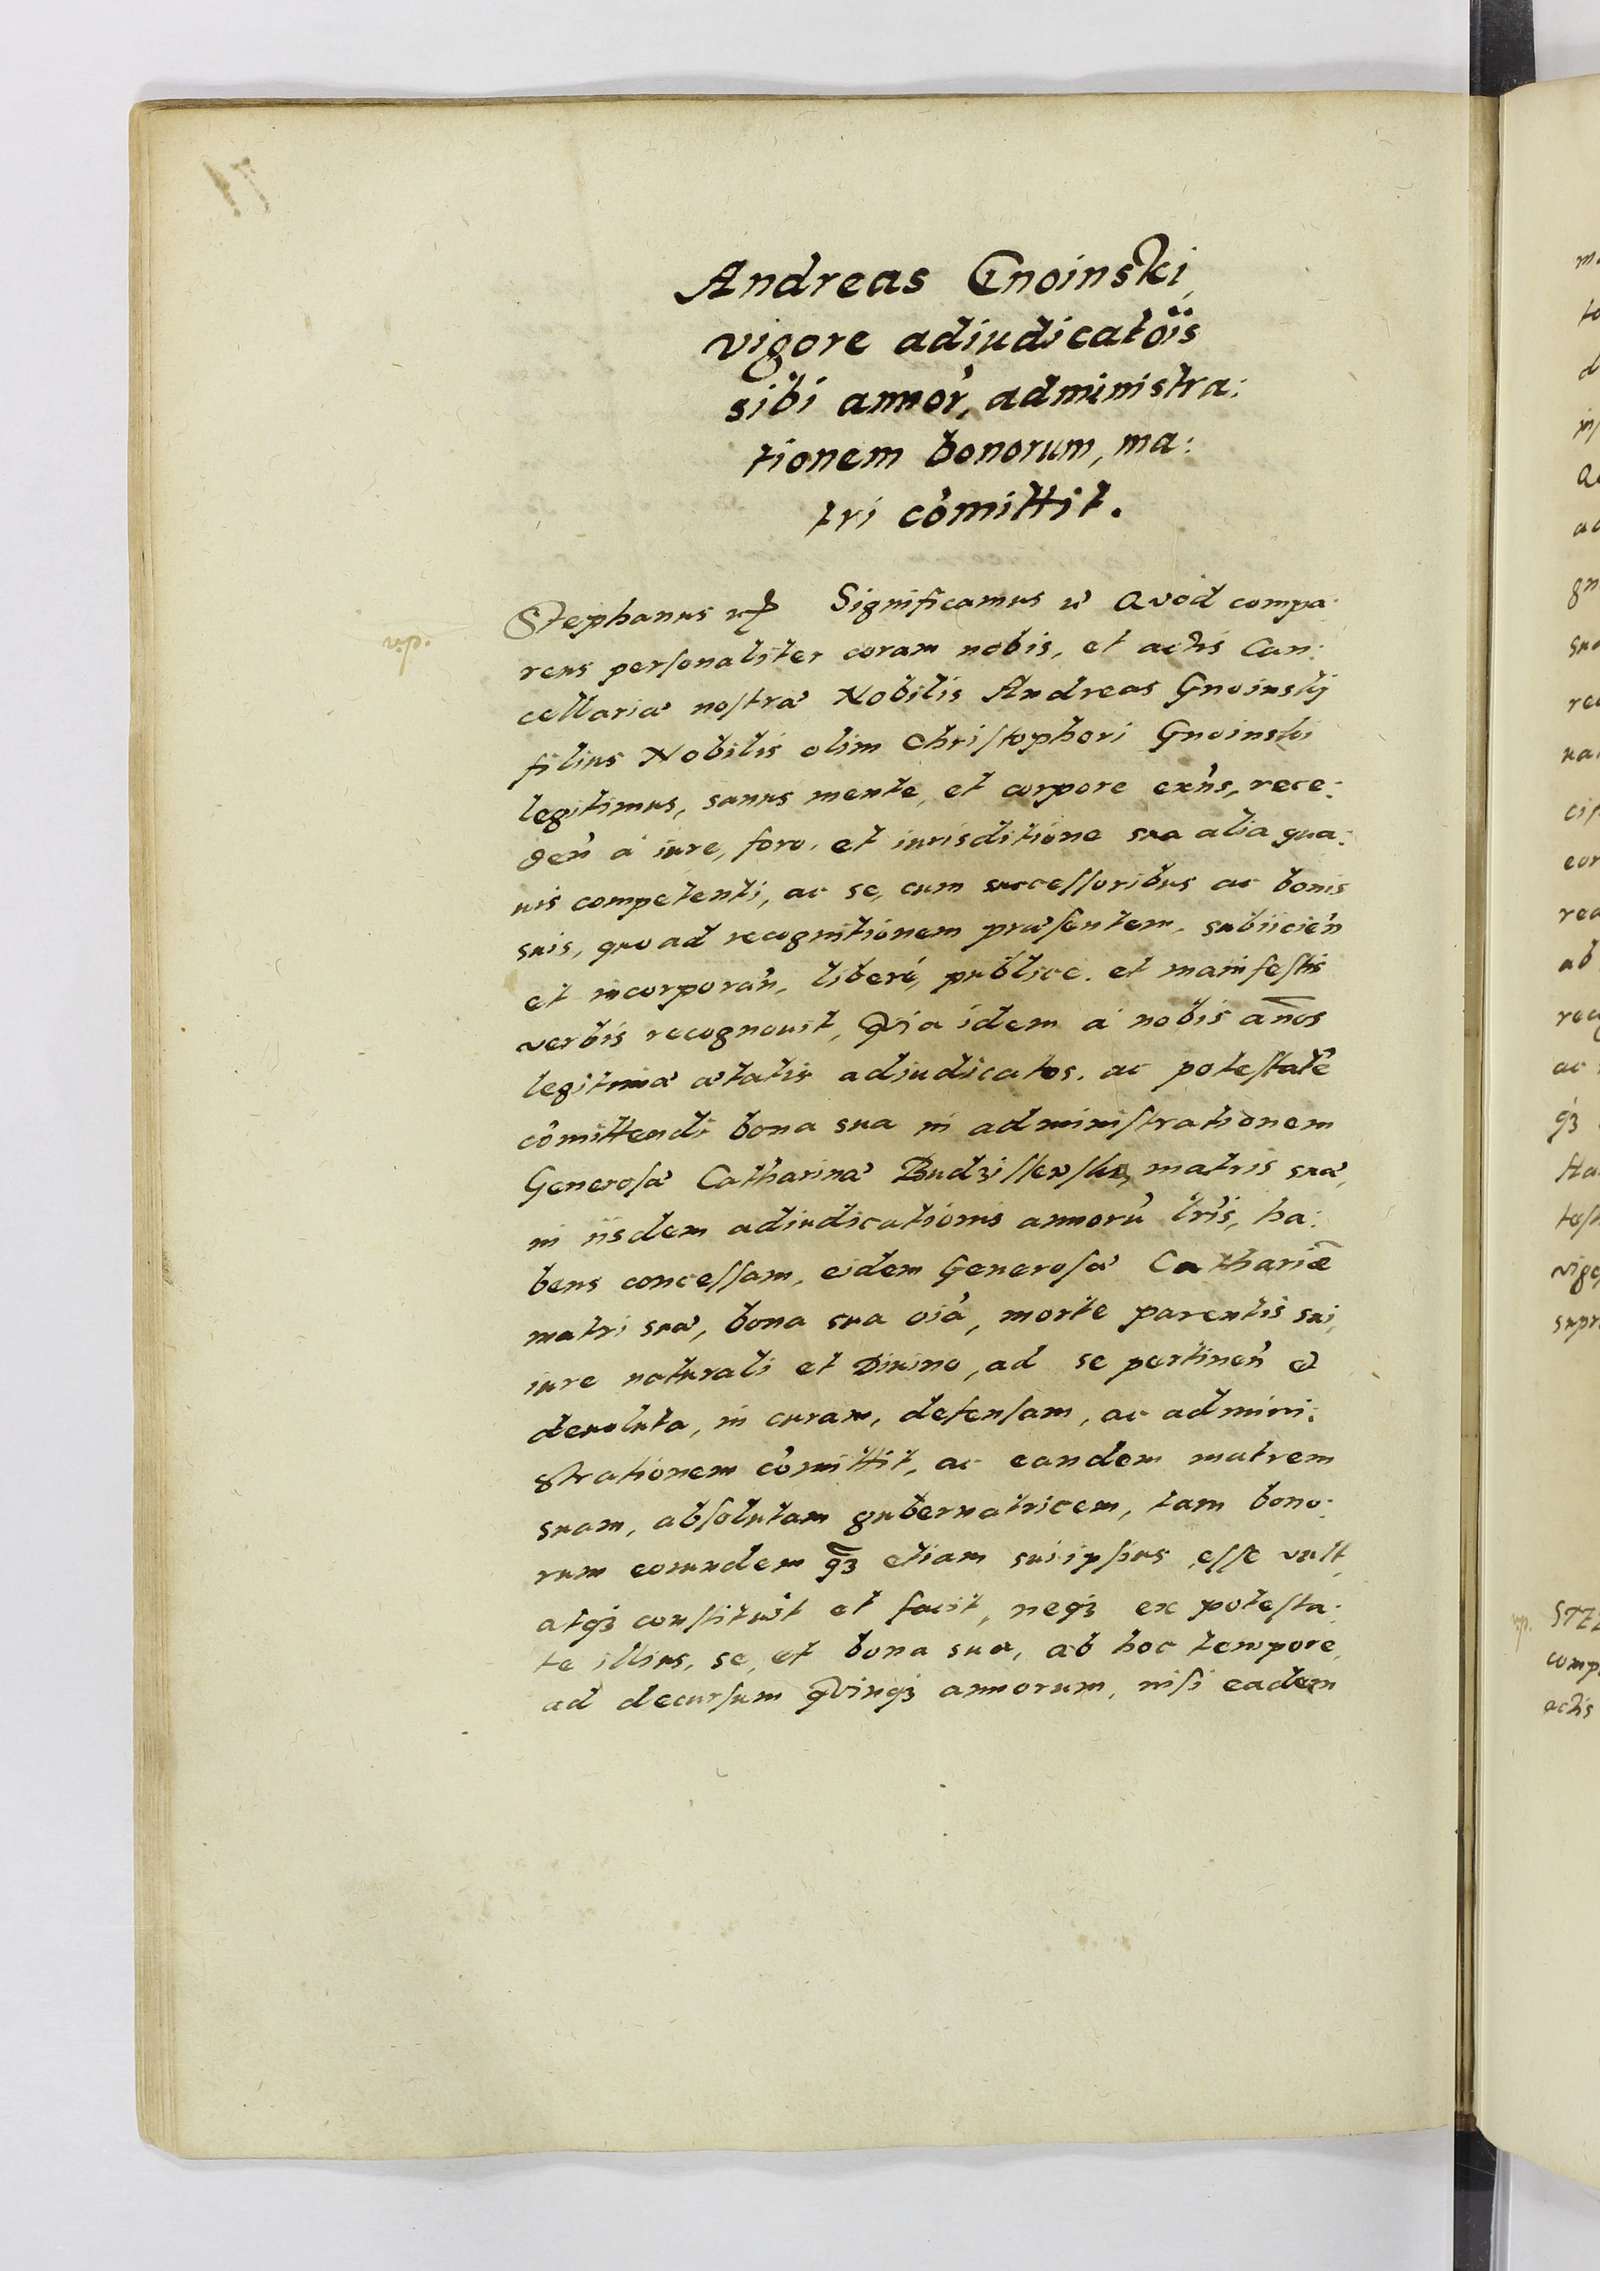 Andreas Gnoinski,
vigore adiudicatõis
sibi annor̃, administra:
tionem bonorum, ma:
tri cõmittit.
Stephanus Significamus Qvod compa:
rens personaliter coram nobis, et actis Can:
cellariæ nostræ Nobilis Andreas Gnoinskij
filius Nobilis olim Christophori Gnoinski
legitimus, sanus mente, et corpore exñs, rece:
deñ à iure, foro, et iurisditione sua alia qua:
uis competenti, ac se, cum successoribus ac bonis
suis, quo ad recognitionem præsentem, subiicieñ
et incorporañ, liberè, publice, et manifestis
verbis recognouit, Qvia idem à nobis años
legitimæ ætatis adiudicatos, ac potestatẽ
cõmittendi bona sua in administrationem
Generosæ Catharinæ matris suæ,
in iisdem adiudicationis annorũ lr̃is, ha:
bens concessam, eidem Generosæ Cathariæ
matri suæ, bona sua oĩa, morte parentis sui,
iure naturali et Diuino, ad se pertineñ et
deuoluta, in curam, defensam, ac admini:
strationem cõmittit, ac eandem matrem
suam, absolutam gubernatricem, tam bono:
rum eorundem q̃ꝫ etiam sui ipsius esse vult,
atqꝫ constituit et facit, neqꝫ ex potesta:
te illius, se, et bona sua, ab hoc tempore,
ad decursum qvinqꝫ annorum, nisi eadem